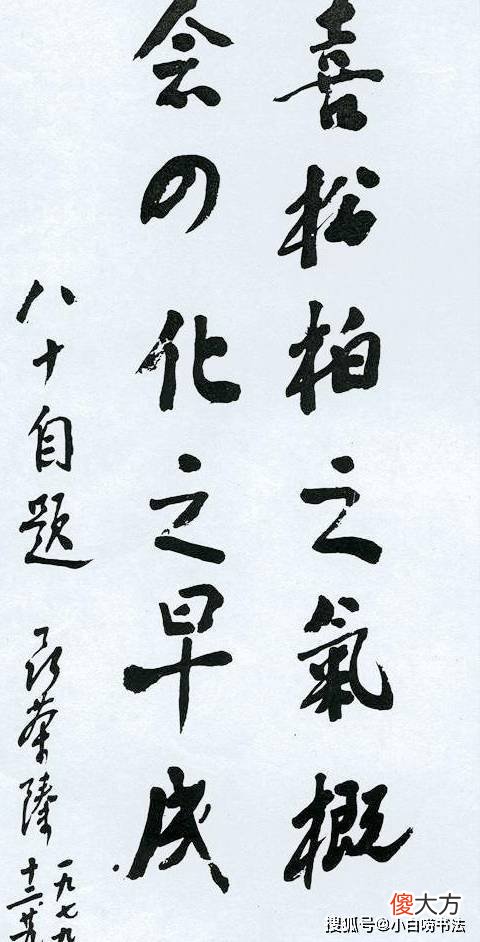 喜松柏之氣概
会四化之早成
八十自题 聂荣臻
一九七九
十二
傻大方
搜狐号@小白唠书法